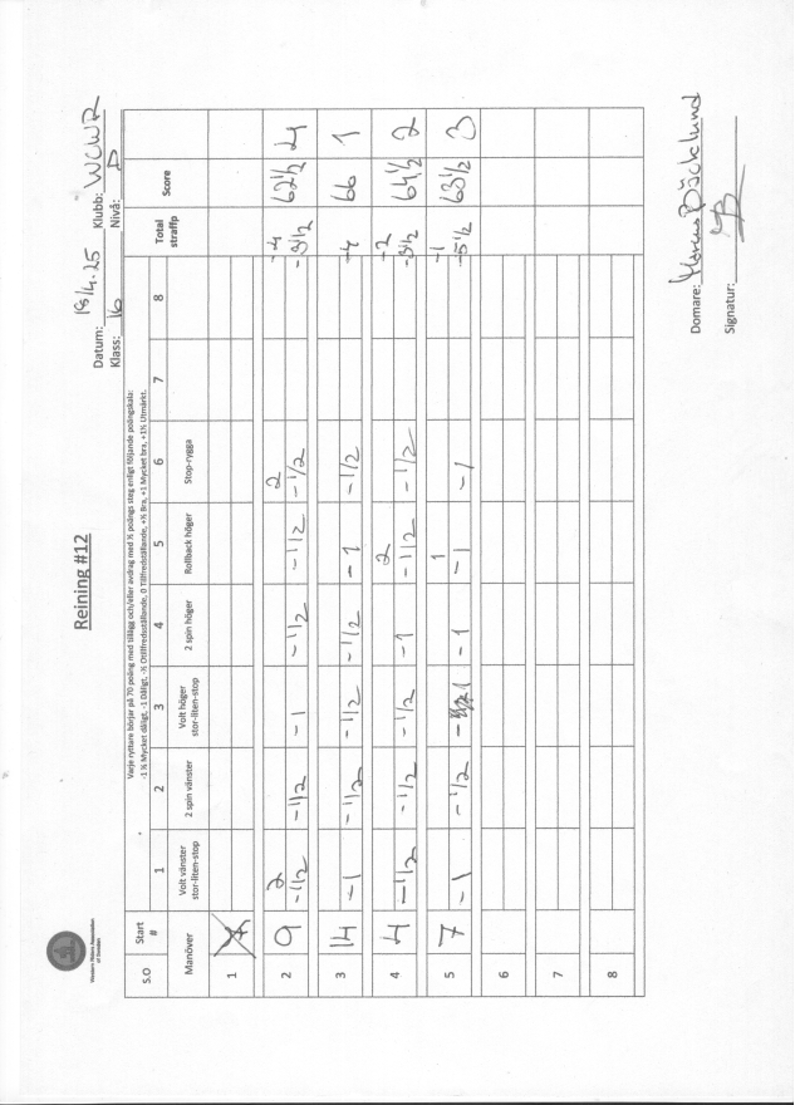 Reining #12
Western Riders Association
of Sweden
Datum: 18/4-25 Klubb: WCWR
Klass: 16 Nivå: D
Varje ryttare börjar på 70 poäng med tillägg och/eller avdrag med ½ poängs steg enligt följande poängskala:
-1 ½ Mycket dåligt, -1 Dåligt, -½ Otillfredsställande, 0 Tillfredställande, +½ Bra, +1 Mycket bra, +1½ Utmärkt.
S.O Start # 1 2 3 4 5 6 7 8 Total straffp Score
Manöver Volt vänster stor-liten-stop 2 spin vänster Volt höger stor-liten-stop 2 spin höger Rollback höger Stop-rygga
1
2 2 -4
9 -1/2 -1/2 -1 -1/2 -1/2 -1/2 -3 1/2 62 1/2 4
2
3 14 -1 -1/2 -1/2 -1/2 -1 -1/2 -4 66 1
2 -2
4 4 -1/2 -1/2 -1/2 -1 -1/2 -1/2 -3 1/2 64 1/2 2
1 -1
5 7 -1 -1/2 -1 -1 -1 -5 1/2 63 1/2 3
6
7
8
Domare: Marcus Bäcklund
Signatur: